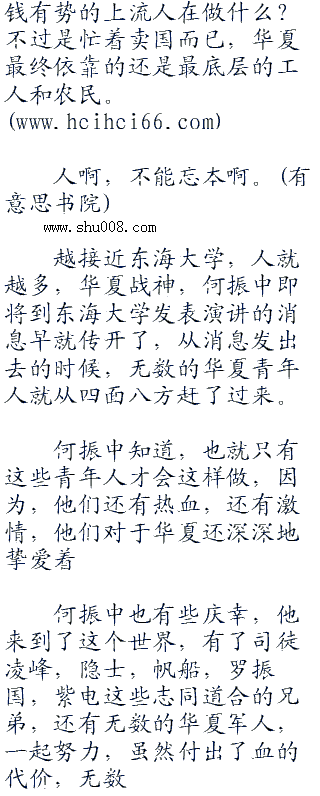 钱有势的上流人在做什么？
不过是忙着卖国而已，华夏
最终依靠的还是最底层的工
人和农民。
(www.hcihci66.com)
人啊，不能忘本啊。(有
意思书院)
www.shu008.com
越接近东海大学，人就
越多，华夏战神，何振中即
将到东海大学发表演讲的消
息早就传开了，从消息发出
去的时候，无数的华夏青年
人就从四面八方赶了过来。
何振中知道，也就只有
这些青年人才会这样做，因
为，他们还有热血，还有激
情，他们对于华夏还深深地
挚爱着
何振中也有些庆幸，他
来到了这个世界，有了司徒
凌峰，隐士，帆船，罗振
国，紫电这些志同道合的兄
弟，还有无数的华夏军人，
一起努力，虽然付出了血的
代价，无数